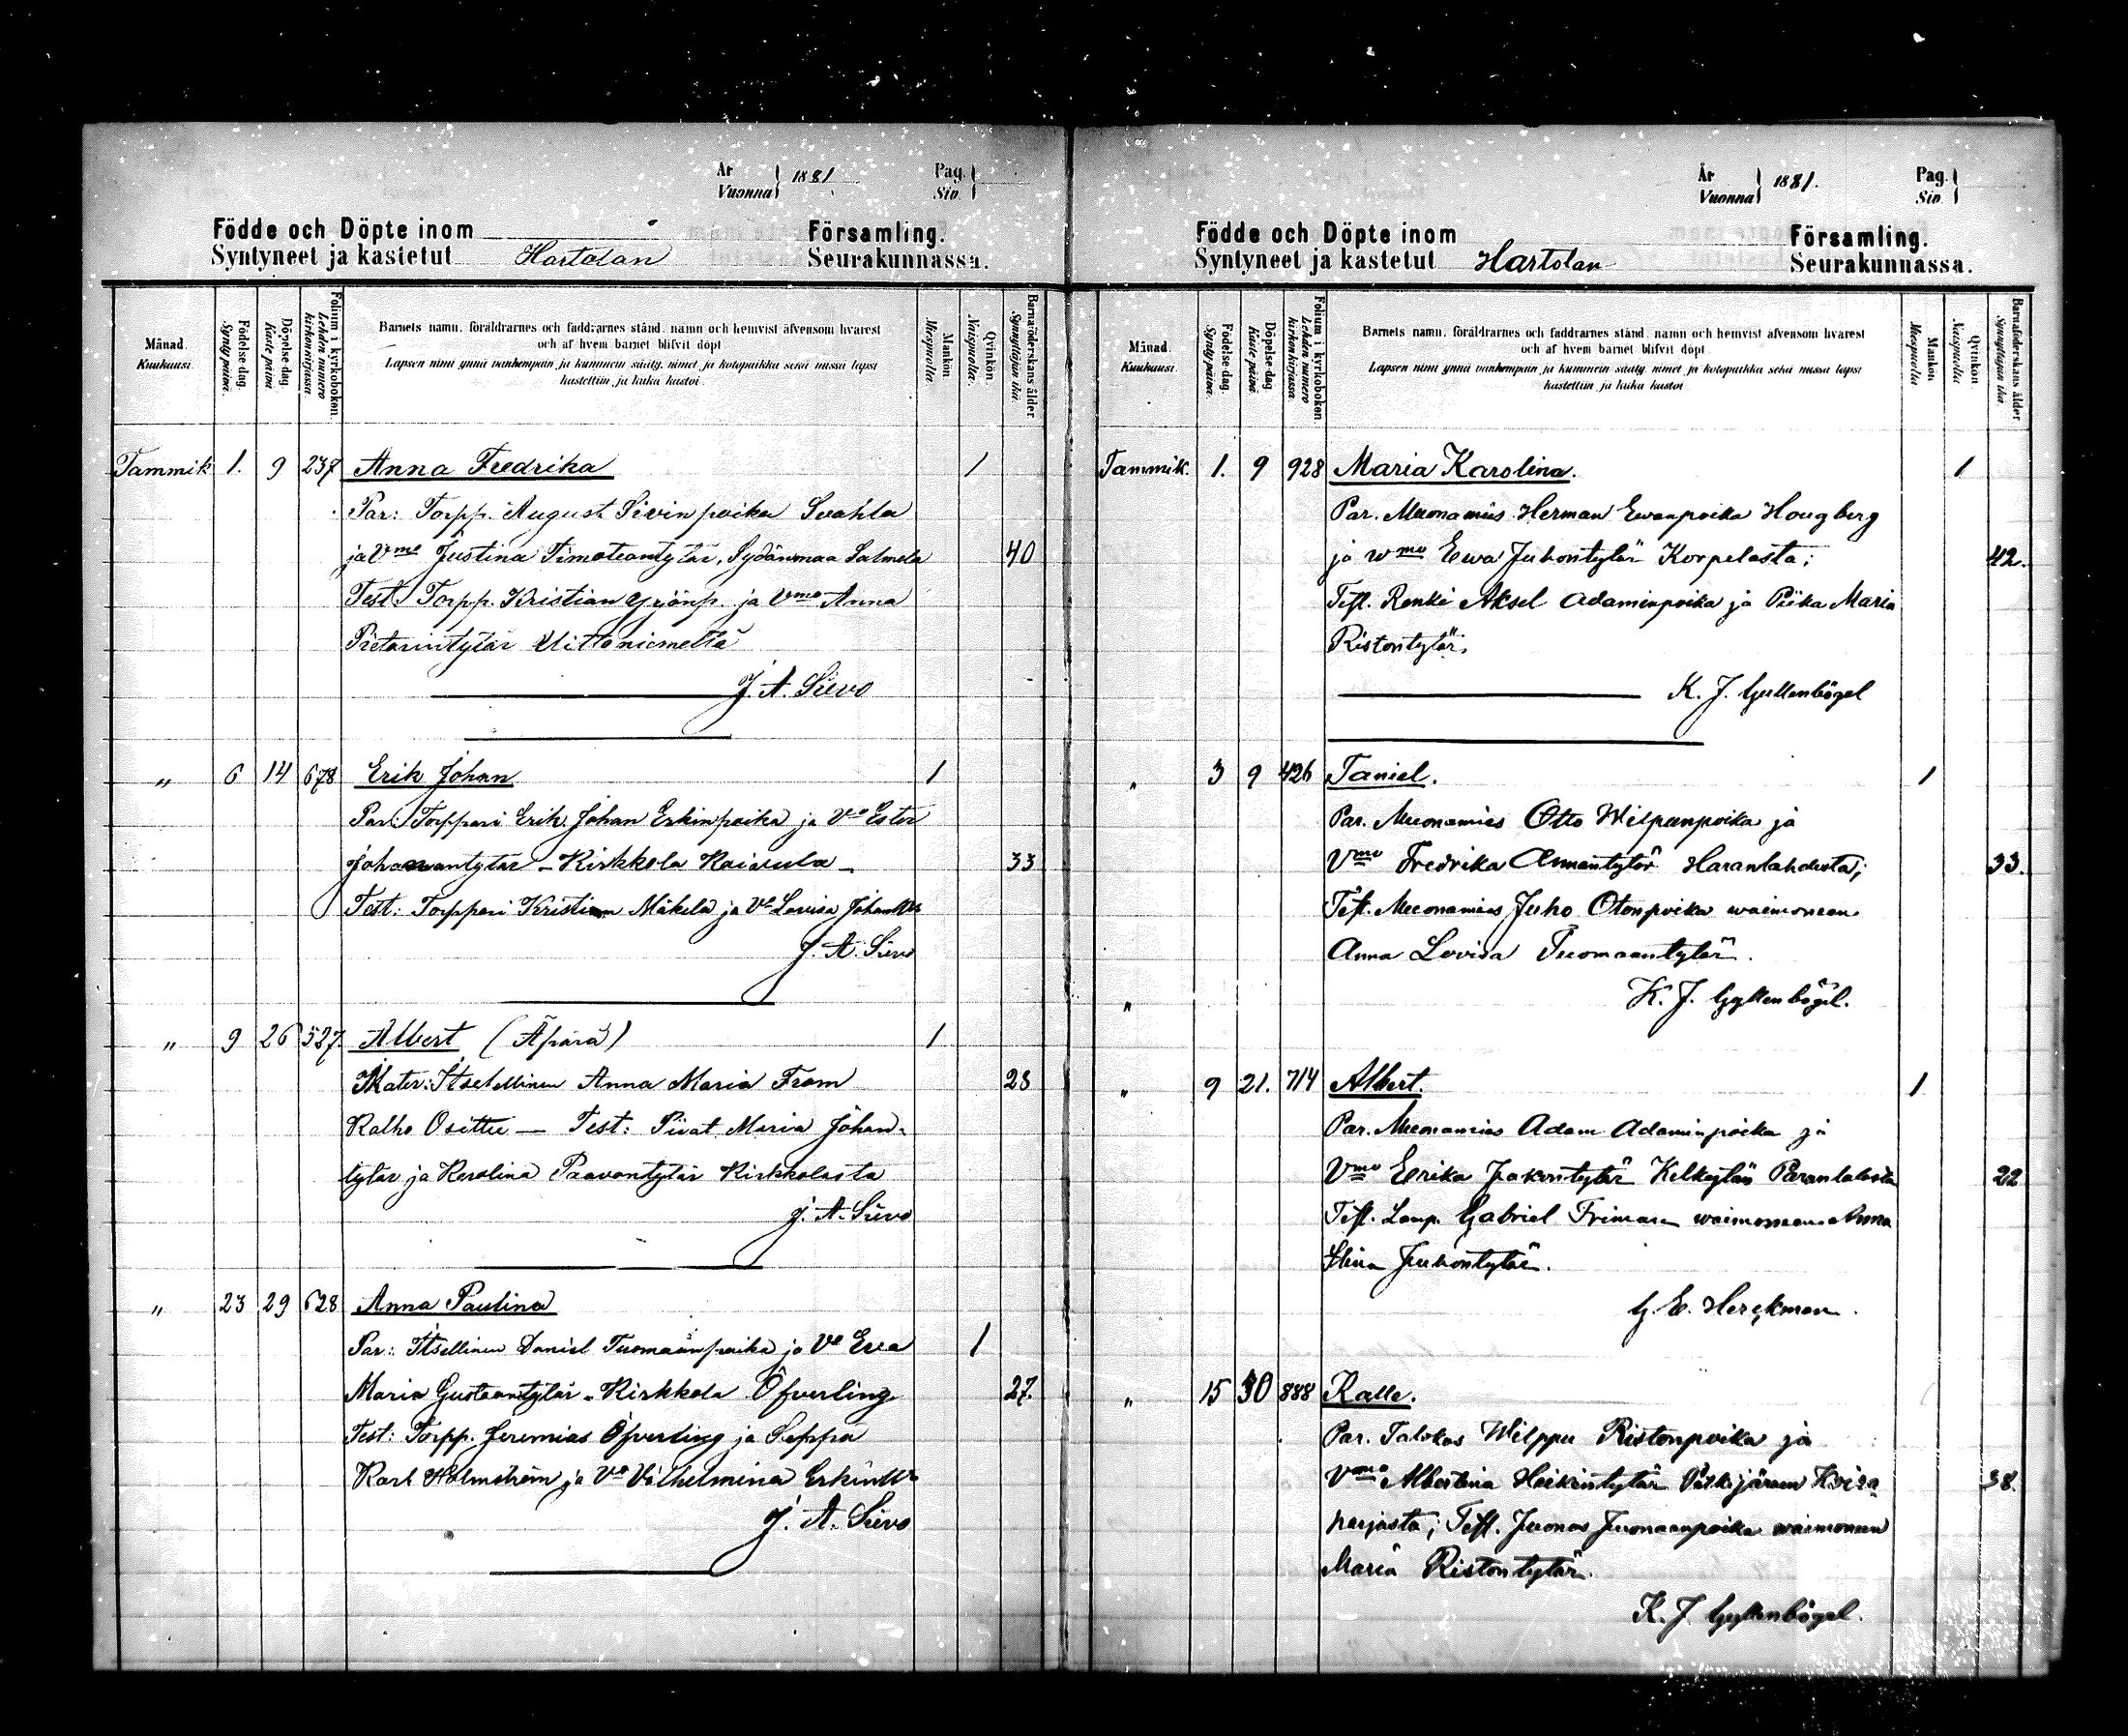 År
Vuonna } 1881
Pag.
Siv. }
Födde och Döpte inom Församling.
Syntyneet ja kastetut Hartolan Seurakunnassa.
Månad.
Kuukausi.
Födelse-dag.
Syntypäivä.
Döpelse-dag.
Kaste päivä
Folium i kyrkoboken.
Lehden numero kirkonkirjassa.
Barnets namn, föräldrarnes och faddrarnes stånd, namn och hemvist äfvensom hvarest
och af hvem barnet blifvit döpt.
Lapsen nimi ynnä vanhempain ja kummein sääty, nimet ja kotopaikka sekä missä lapsi
kastettiin ja kuka kastoi.
Mankön
Miespuolia
Qvinkön
Naispuolia.
Barnaföderskans ålder
Synnyttäjän ikä.
Tammik 1. 9 237 Anna Fredrika 1
Par: Torpp. August Sivinpoika Svahla
ja Vmo Justina Timoteantytär, Sydänmaa Salmela 40
Test Torpp. Kristian Yrjönp. ja Vmo Anna
Pietarintytär Uittoniemeltä
J. A. Sievo
" 6 14 678 Erik Johan 1
Par: Torppari Erik Johan Erkinpoika ja Vo Ester
Johanantytär - Kirkkola Koivula - 33
Test: Torppari Kristian Mäkelä ja Vo Lovisa Johantr
J. A. Sievo
" 9 26 527. Albert (Äpärä) 1
Mater: Itsellinen Anna Maria From 28
Kalho Osittu — Test: Piiat Maria Johan-
tytär ja Karolina Paavontytär Kirkkolasta
J. A. Sievo
" 23 29 628 Anna Paulina
Par: Itsellinen Daniel Tuomaanpoika ja Vo Eva 1
Maria Gustaantytär - Kirkkola Öfverling 27.
Test: Torpp. Jeremias Öfverling ja Seppä
Karl Holmström ja Vo Vilhelmina Erkintr
J. A. Sievo
År
Vuonna } 1881.
Pag.
Siv. }
Födde och Döpte inom Församling.
Syntyneet ja kastetut Hartolan Seurakunnassa.
Månad.
Kuukausi.
Födelse-dag.
Syntypäivä.
Döpelse-dag.
Kaste päivä
Folium i kyrkoboken.
Lehden numero kirkonkirjassa
Barnets namn, föräldrarnes och faddrarnes stånd, namn och hemvist äfvensom hvarest
och af hvem barnet blifvit döpt.
Lapsen nimi ynnä vanhempain ja kummein sääty, nimet ja kotopaikka sekä missä lapsi
kastettiin ja kuka kastoi.
Mankön
Miespuolia
Qvinkön
Naispuolia
Barnaföderskans ålder
Synnyttäjän ikä.
Tammik. 1. 9 928 Maria Karolina. 1
Par. Muonamies Herman Ewanpoika Hougberg
ja wmo Ewa Juhontytär Korpelasta; 42.
Test. Renki Aksel Adaminpoika ja Piika Maria
Ristontytär.
K. J. Gyllenbögel
" 3 9 426 Taniel. 1
Par. Muonamies Otto Wilpunpoika ja
Vmo Fredrika Annantytär Haranlahdesta; 33.
Test. Muonamies Juho Otonpoika waimoneen
Anna Lovisa Tuomaantytär.
" K. J. Gyllenbögel.
" 9 21. 714 Albert. 1
Par. Muonamies Adam Adaminpoika ja
Vmo Erika Jakontytär Kelkytän Parantalosta 22
Test. Lamp. Gabriel Friman waimoneen Anna
Stina Juhontytär.
G. E. Herckman.
" 15 30 888 Kalle.
Par. Talokas Wilppu Ristonpoika ja
Vmo Albertina Heikintytär Pitkäjärven Koira 38.
harjasta; Test. Juonas Juonaanpoika waimoneen
Maria Ristontytär.
K. J. Gyllenbögel.